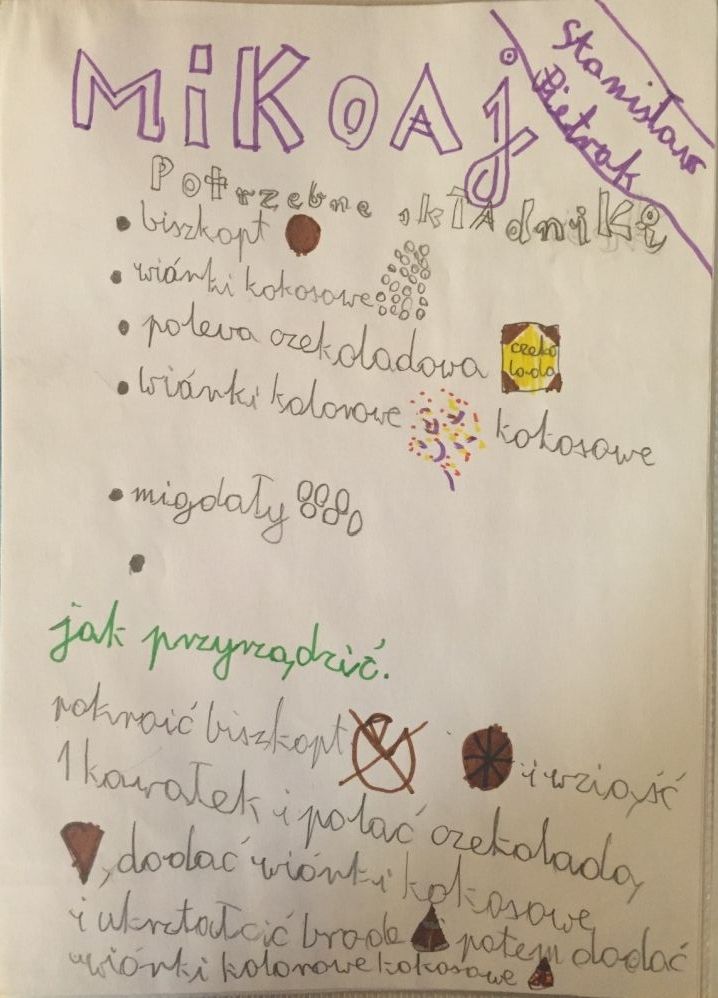 MiKOAj
Stanisław
Pietrak
Potrzebne składniki
• biszkopt
• wiórki kokosowe
• polewa czekoladowa
czeko
lada
• wiórki kolorowe kokosowe
• migdały
•
jak przyrządzić.
pokroić biszkopt i wziąść
1 kawałek i polać czekoladą
, dodać wiórki kokosowe
i ukrztałcić brode i potem dodać
wiórki kolorowe kokosowe